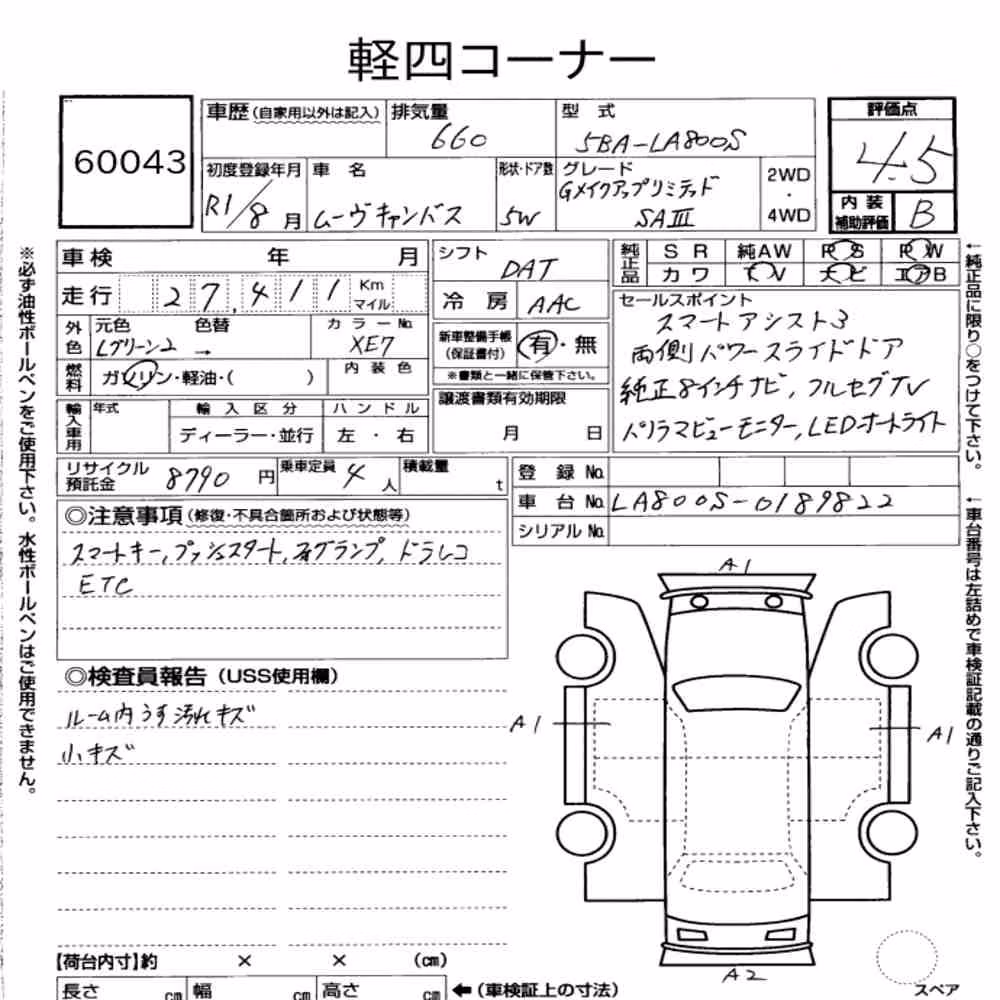 軽四コーナー
60043
車歴 (自家用以外は記入)
排気量
660
型 式
5BA-LA800S
評価点
4.5
初度登録年月
R1/8月
車 名
ムーヴキャンバス
形状・ドア数
5W
グレード
Gメイクアップリミテッド
SAⅢ
2WD
・
4WD
内 装
補助評価
B
車検 年 月
走行 27,411 Km
マイル
外色
元色 色替
Lグリーン2 →
カラーNo.
XE7
燃料
ガソリン・軽油・( )
内 装 色
輸入車用
年式
輸 入 区 分
ディーラー・並行
ハ ン ド ル
左 ・ 右
シフト
DAT
冷 房
AAC
新車整備手帳
(保証書付)
有・無
※書類と一緒に保管下さい。
譲渡書類有効期限
月 日
純正品
S R 純AW P S P W
カ ワ T V ナ ビ エアB
セールスポイント
スマートアシスト3
両側パワースライドドア
純正8インチナビ, フルセグTV
パノラマビューモニター, LEDオートライト
リサイクル
預託金
8790 円
乗車定員
4 人
積載量
t
登 録 No.
車 台 No. LA800S-0189822
シリアル No.
◎注意事項 (修復・不具合箇所および状態等)
スマートキー, プッシュスタート, フォグランプ, ドラレコ
ETC
◎検査員報告 (USS使用欄)
ルーム内うす汚れキズ
小キズ
A1
A1
A1
A2
【荷台内寸】約 × × (cm)
長さ cm 幅 cm 高さ cm
←(車検証上の寸法)
スペア
※必ず油性ボールペンをご使用下さい。水性ボールペンはご使用できません。
←純正品に限り○をつけて下さい。
←車台番号は左詰めで車検証記載の通りご記入下さい。